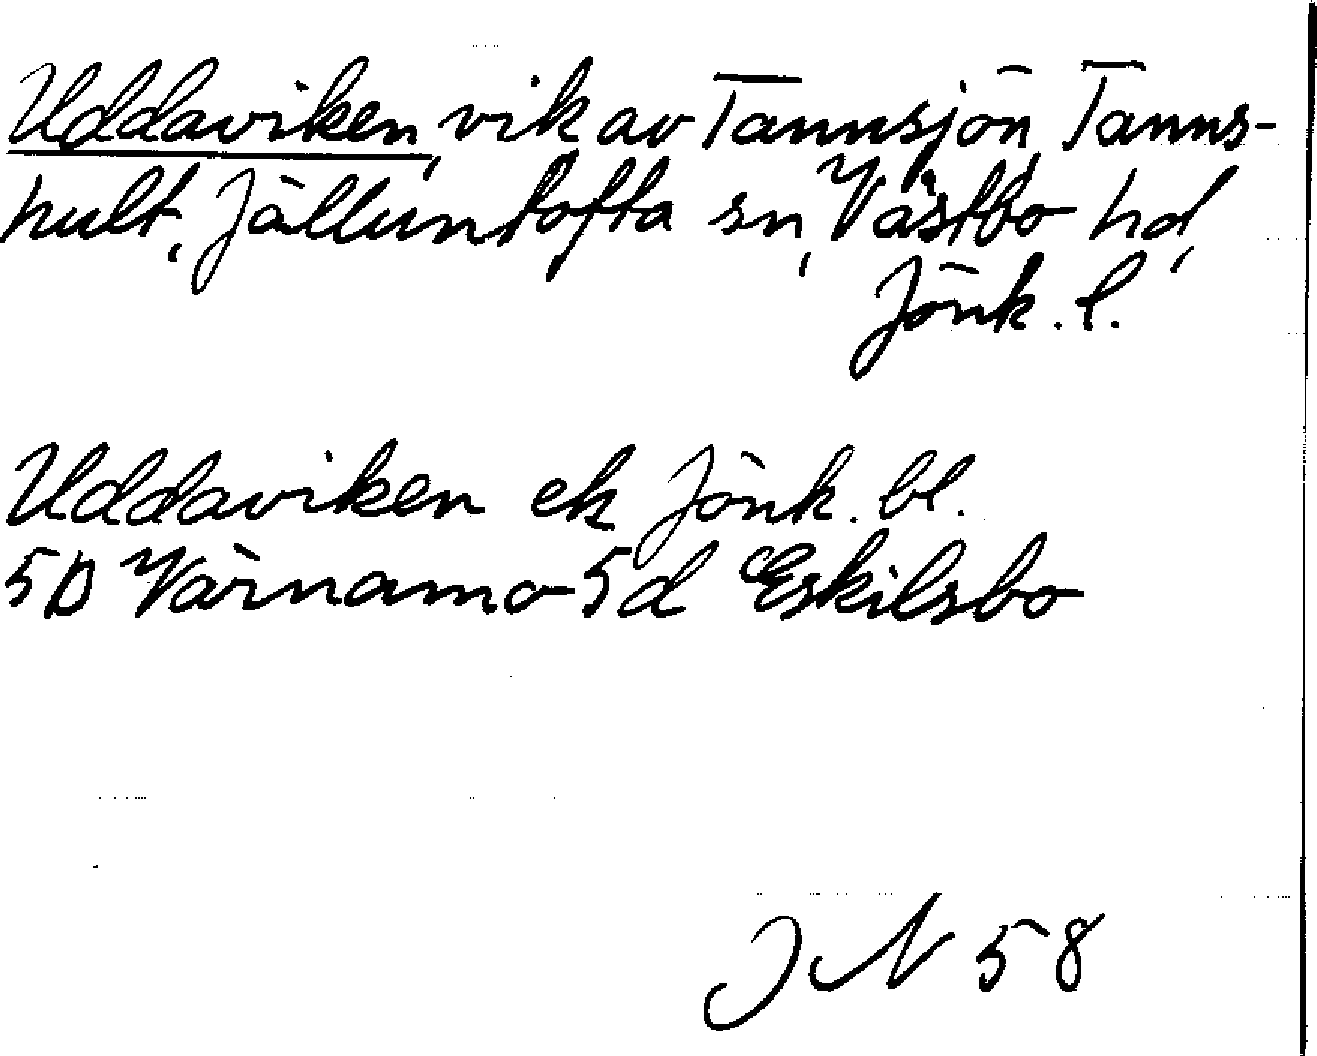 Uddaviken, vik av Tannsjön, Tanns-
hult, Jälluntofta sn, Västbo hd,
Jönk. l.
Uddaviken ek Jönk. bl.
5D Värnamo 5d Eskilsbo
JN 58